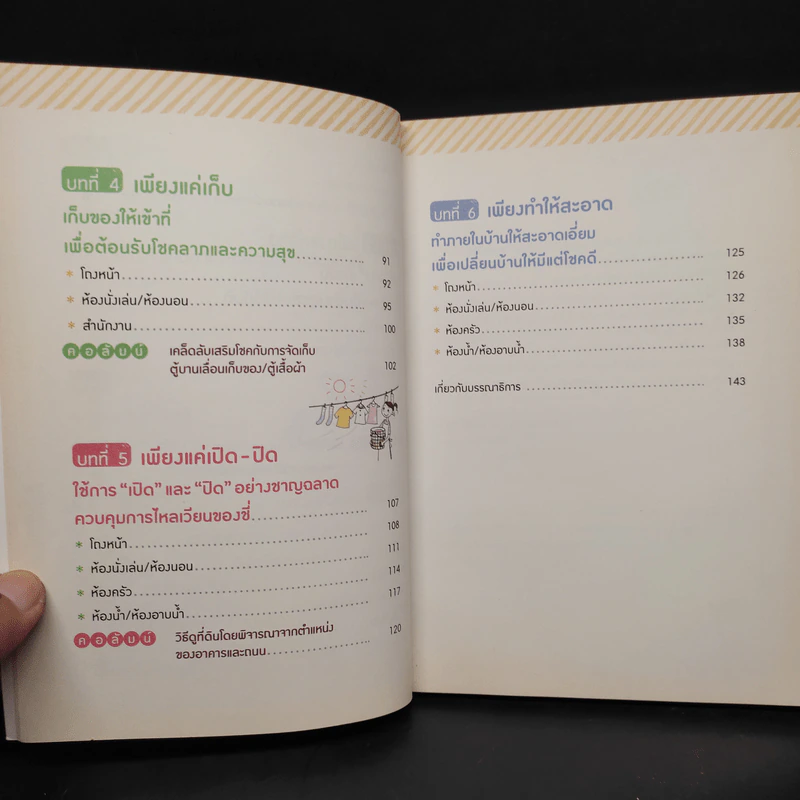 บทที่ 4 เพียงแค่เก็บ
เก็บของให้เข้าที่
เพื่อต้อนรับโชคลาภและความสุข 91
* โถงหน้า 92
* ห้องนั่งเล่น/ห้องนอน 95
* สำนักงาน 100
คอลัมน์ เคล็ดลับเสริมโชคกับการจัดเก็บ
ตู้บานเลื่อนเก็บของ/ตู้เสื้อผ้า 102
บทที่ 5 เพียงแค่เปิด-ปิด
ใช้การ “เปิด” และ “ปิด” อย่างชาญฉลาด
ควบคุมการไหลเวียนของชี่ 107
* โถงหน้า 108
* ห้องนั่งเล่น/ห้องนอน 111
* ห้องครัว 114
* ห้องน้ำ/ห้องอาบน้ำ 117
คอลัมน์ วิธีดูที่ดินโดยพิจารณาจากตำแหน่ง
ของอาคารและถนน 120
บทที่ 6 เพียงทำให้สะอาด
ทำภายในบ้านให้สะอาดเอี่ยม
เพื่อเปลี่ยนบ้านให้มีแต่โชคดี 125
* โถงหน้า 126
* ห้องนั่งเล่น/ห้องนอน 132
* ห้องครัว 135
* ห้องน้ำ/ห้องอาบน้ำ 138
เกี่ยวกับบรรณาธิการ 143